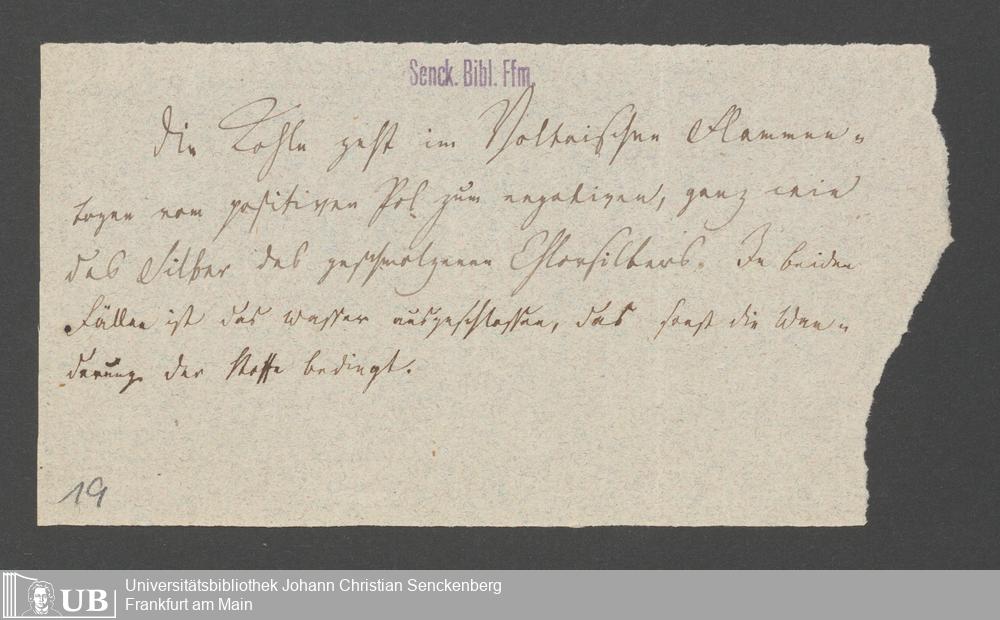 Senck. Bibl. Ffm.
Die Kohle geht im Voltaischen Flammen-
bogen vom positiven Pol zum negativen, ganz wie
das Silber des geschmolzenen Chlorsilbers. In beiden
Fällen ist das Wasser ausgeschlossen, das sonst die Wan-
derung der Stoffe bedingt.
19
UB
Universitätsbibliothek Johann Christian Senckenberg
Frankfurt am Main